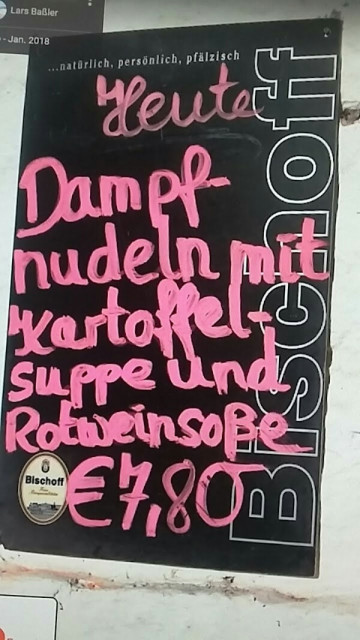 Lara Baßler
- Jan. 2018
...natürlich, persönlich, pfälzisch
Heute
Dampf-
nudeln mit
Kartoffel-
suppe und
Rotweinsoße
€7,80
Bischoff
Bischoff